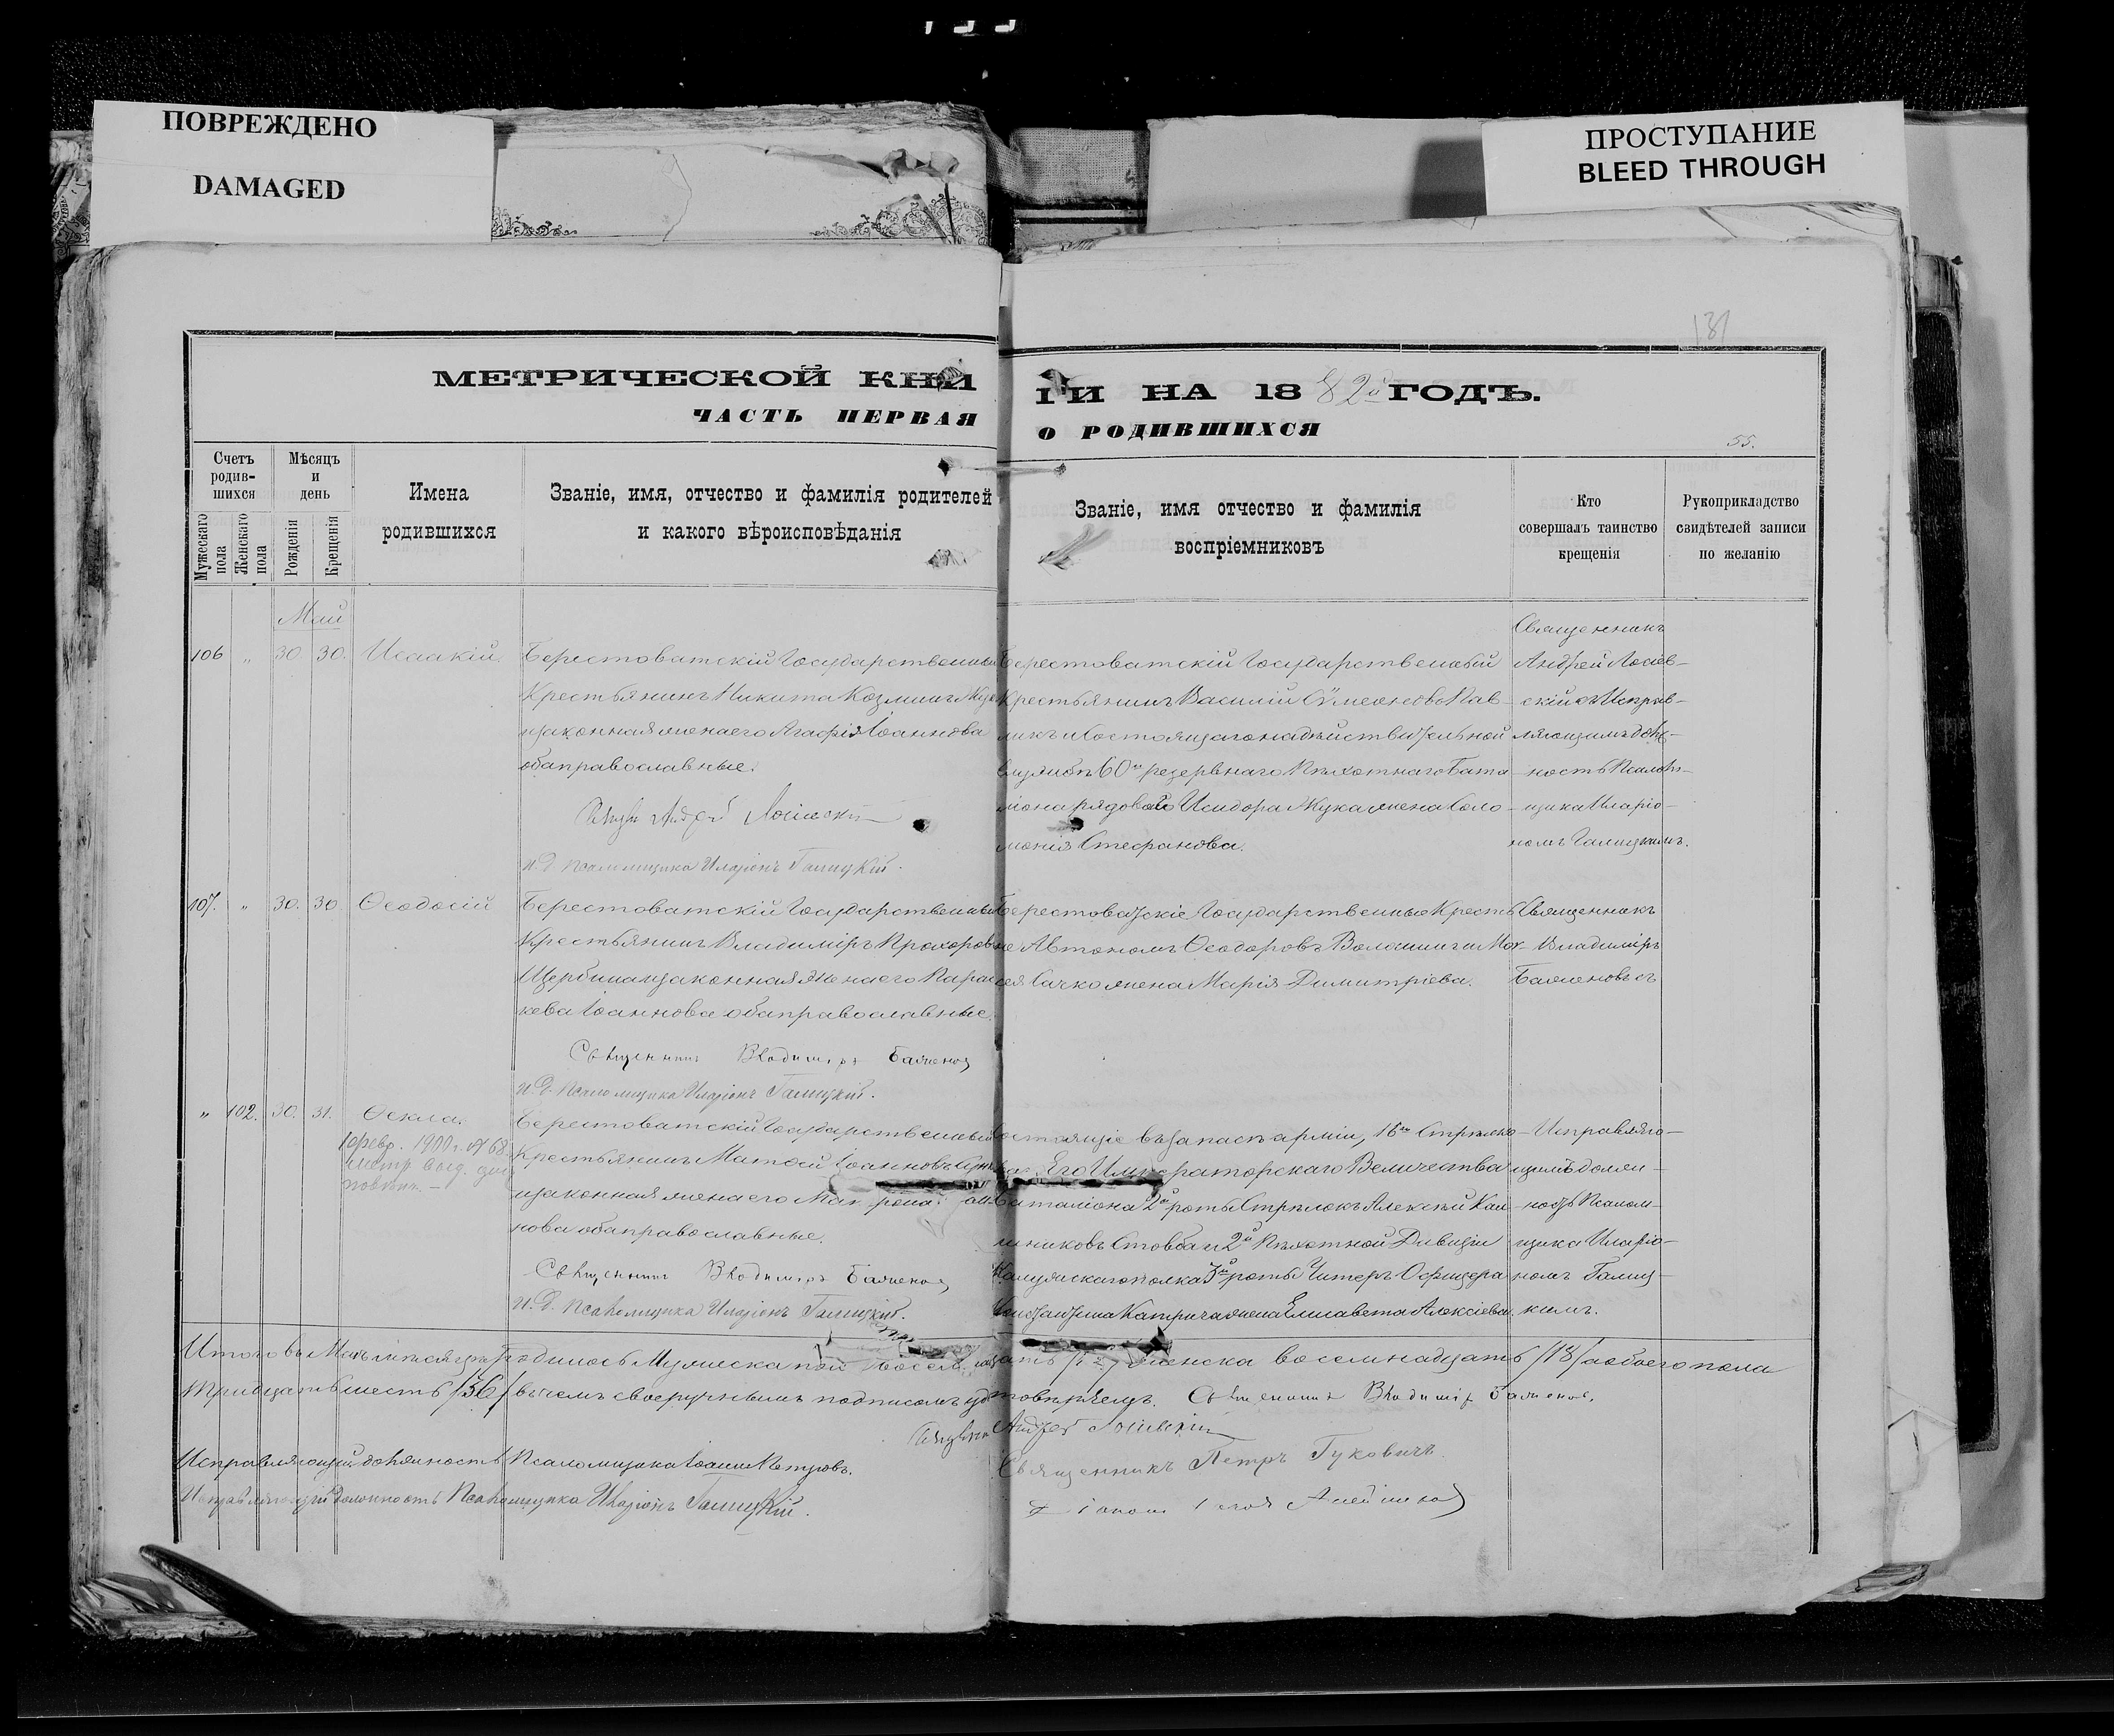 ПОВРЕЖДЕНО
DAMAGED
ПРОСТУПАНИЕ
BLEED THROUGH
131
МЕТРИЧЕСКОЙ КНИ
ГИ НА 1882й ГОДЪ.
ЧАСТЬ ПЕРВАЯ
О РОДИВШИХСЯ
55.
Счетъ родив-шихся
Мѣсяцъ и день
Имена родившихся
Званіе, имя, отчество и фамилія родителей
и какого вѣроисповѣданія
Званіе, имя отчество и фамилія
воспріемниковъ
Кто
совершалъ таинство
крещенія
Рукоприкладство
свидѣтелей записи
по желанію
Мужескаго пола
Женскаго пола
Рожденія
Крещенія
Май
106 " 30 30. Исаакій.
Берестоватскій Государственный
Крестьянинъ Никита Козминъ
изаконная жена его Агафія Іоаннова
оба православные.
Андрей
И. Д. Псаломщика Иларіонъ Галицкій.
Берестоватскій Государственный
Крестьянинъ Василій Сѵмеоновъ Пав-
ликъ и состоящаго на дѣйствительной
службѣ 60го резервнаго Пѣхотнаго Бата
ліона рядоваго Исидора Жука жена Соло-
монія Стефанова.
Священникъ
Андрей
скій съ Исправ-
ляющимъ долж-
ность Псалом-
щика Иларіо-
номъ Галицкимъ.
107. " 30. 30 Ѳеодосій
Берестоватскій Государственный
Крестьянинъ Владиміръ Прохоровъ
Щербина изаконная жена его Парас
кева Іоаннова оба православные.
Священникъ Владиміръ Баженовъ
И. Д. Псаломщика Иларіонъ Галицкій.
Берестоватскіе Государственные Кресть
не Автономъ Ѳеодоровъ Волошинъ и Мо
сея Сачко жена Марія Димитріева.
Священникъ
Владиміръ
Баженовъ съ
" 102. 30. 31. Ѳекла.
10 февр. 1900 г. № 68
Берестоватскій Государственный
Крестьянинъ Матѳей Іоанновъ
изаконная жена его
нова оба православные.
Священникъ Владиміръ Баженовъ
И. Д. Псаломщика Иларіонъ Галицкій.
Состоящіе въ запасѣ арміи, 16го Стрѣлко
Его Императорскаго Величества
Баталіона 2й роты Стрѣлокъ Алексѣй
Стовба и 2й Пѣхотной Дивизіи
Калужскаго полка 3й роты Унтеръ Офицера
жена Елисавета Алексіева.
Исправляю-
щимъ долж-
ность Псалом-
щика Иларіо-
номъ Галиц-
кимъ.
Итого въ Маѣ мѣсяцѣ родилось Мужеска пола восемнадцать женска восемнадцать /18/ а обоего пола
тридцать шесть /36/ въ чемъ своеручнымъ подписомъ удостовѣряемъ. Священникъ Владиміръ Баженовъ.
Священникъ Андрей
Исправляющій должность Псаломщика Іоаннъ Петровъ.
Священникъ Петръ Гуковичъ
Исправляющій должность Псаломщика Иларіонъ Галицкій.
Діаконъ